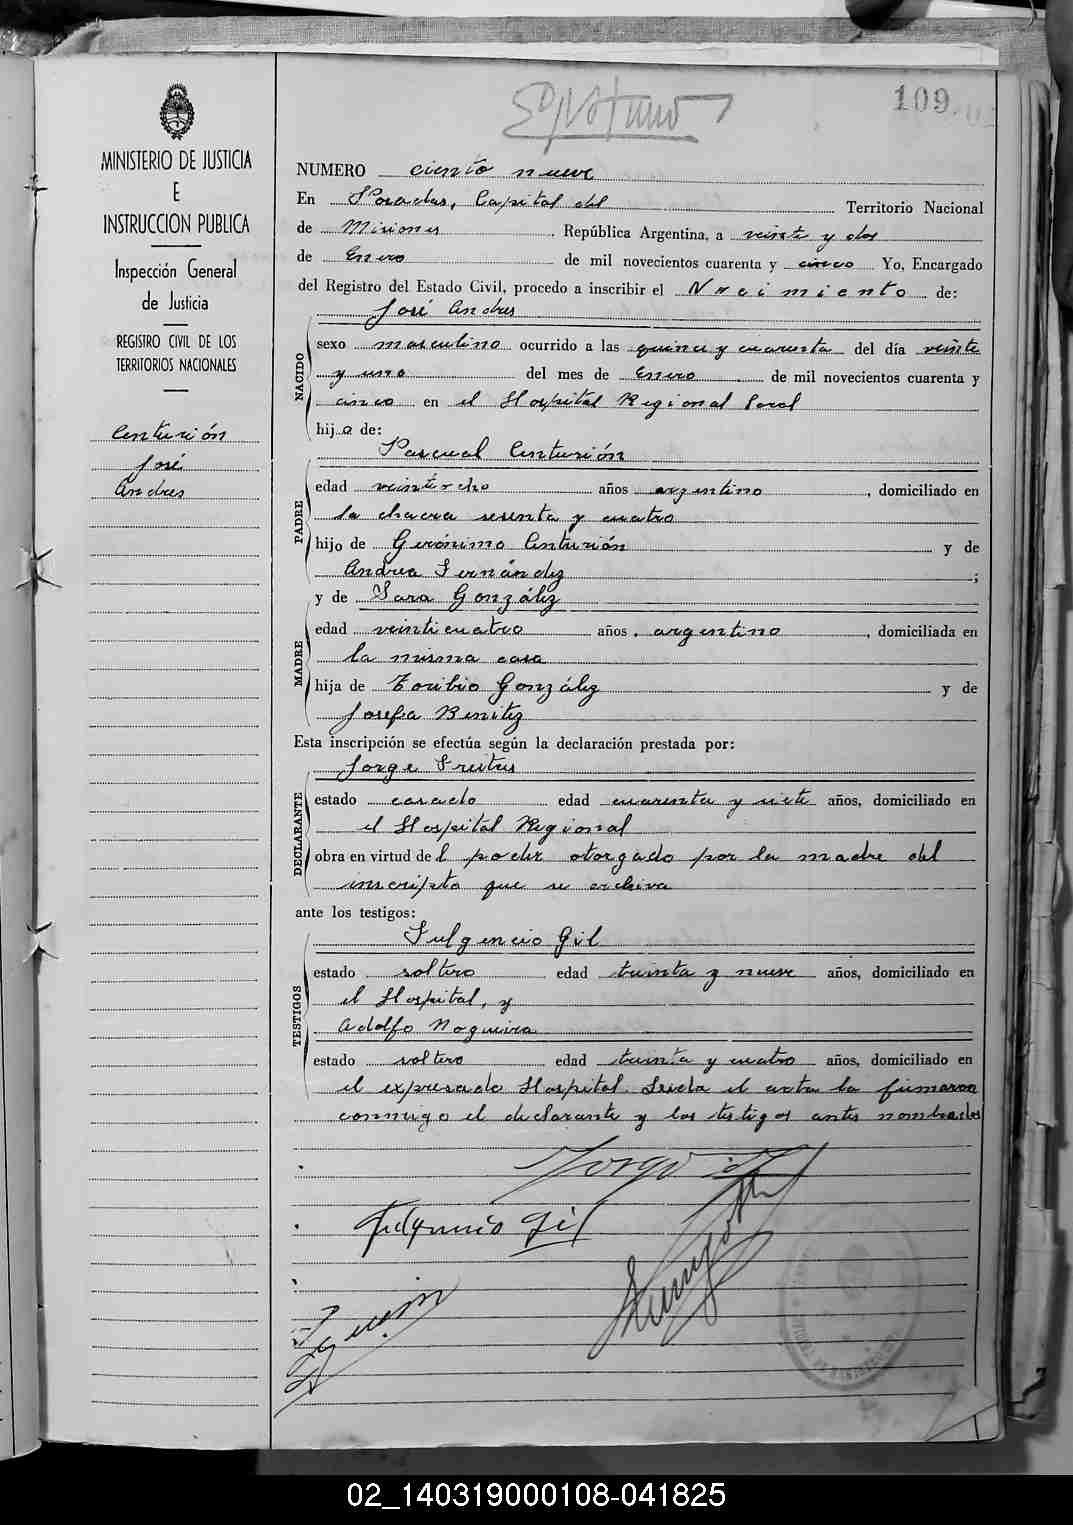 109
MINISTERIO DE JUSTICIA
E
INSTRUCCION PUBLICA
Inspección General
de Justicia
REGISTRO CIVIL DE LOS
TERRITORIOS NACIONALES
Centurión
José
Andres
NUMERO ciento nueve
En Posadas, Capital del Territorio Nacional
de Misiones República Argentina, a veinte y dos
de Enero de mil novecientos cuarenta y cinco Yo, Encargado
del Registro del Estado Civil, procedo a inscribir el Nacimiento de:
José Andres
NACIDO
sexo masculino ocurrido a las quince y cuarenta del día veinte
y uno del mes de Enero de mil novecientos cuarenta y
cinco en el Hospital Regional local
hijo de:
Pascual Centurión
PADRE
edad veintiocho años argentino, domiciliado en
la chacra sesenta y cuatro
hijo de Gerónimo Centurión y de
Andrea Fernández;
y de Sara González
MADRE
edad veinticuatro años, argentino, domiciliada en
la misma casa
hija de Toribio González y de
Josefa Benitez
Esta inscripción se efectúa según la declaración prestada por:
Jorge Freitas
DECLARANTE
estado casado edad cuarenta y siete años, domiciliado en
el Hospital Regional
obra en virtud del poder otorgado por la madre del
inscripto que se archiva
ante los testigos:
Fulgencio Gil
TESTIGOS
estado soltero edad treinta y nueve años, domiciliado en
el Hospital, y
Adolfo Nogueira
estado soltero edad treinta y cuatro años, domiciliado en
el expresado Hospital. Leida el acta la firmaron
conmigo el declarante y los testigos antes nombrados
Fulgencio Gil
02_140319000108-041825